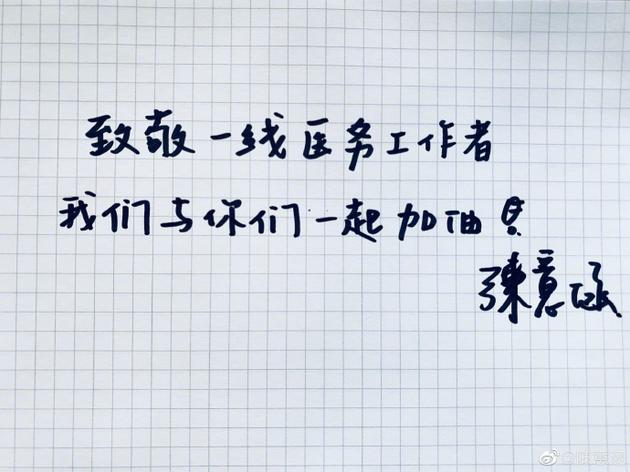 致敬一线医务工作者
我们与你们一起加油！
陳意涵